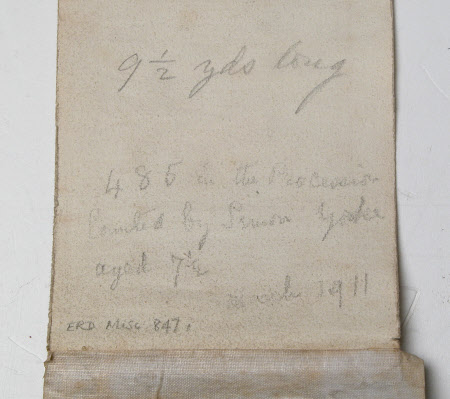 9½ yds long
485 in the Procession
Counted by Simon Yorke
aged 7½
March 1911
ERD MISC 847.